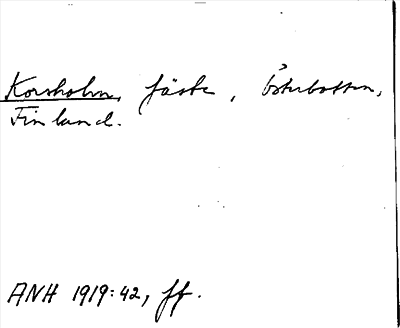 Korsholm, fäste, Österbotten,
Finland.
ANH 1919:42, ff.